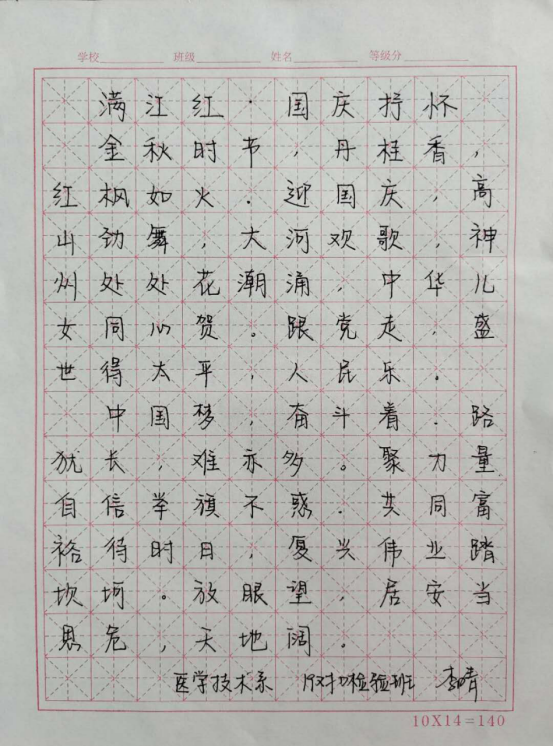 学校 班级 姓名 等级分
满江红·国庆抒怀
金秋时节，丹桂香，
红枫如火．迎国庆，高
山劲舞，大河欢歌，神
州处处花潮涌，中华儿
女同心贺。跟党走，盛
世得太平，人民乐．
中国梦，奋斗着．路
犹长，难亦多。聚力量
自信举旗不惑．共同富
裕待时日，复兴伟业踏
坎坷。放眼望，居安当
思危，天地阔．
医学技术系 19对口检验班 李晴
10X14=140